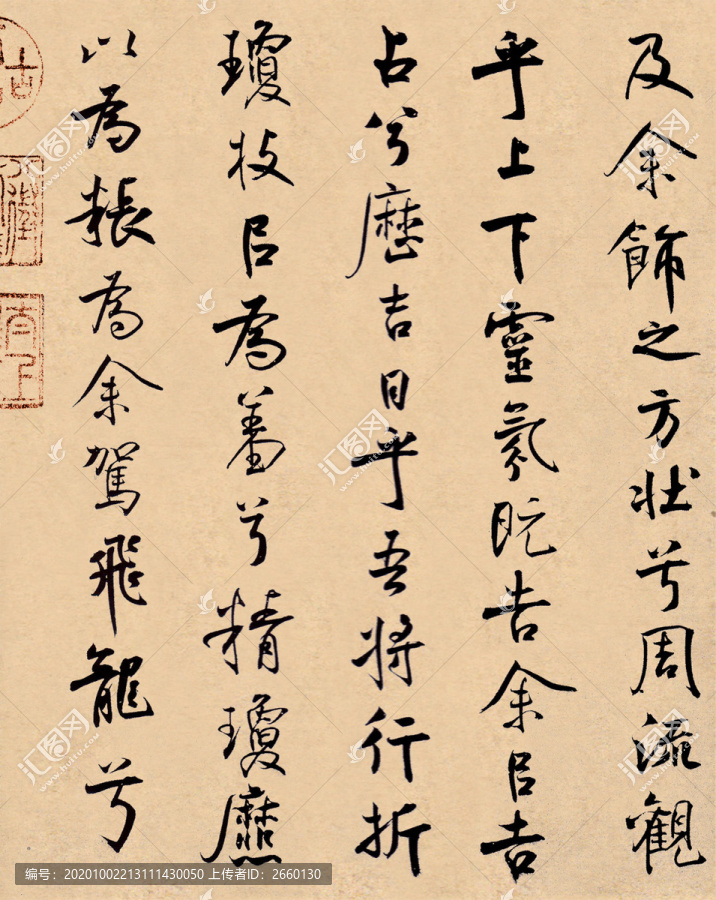 及余飾之方壯兮周流觀
乎上下靈氛既告余㠯吉
占兮歷吉日乎吾將行折
瓊枝㠯為羞兮精瓊爢
以為粻為余駕飛龍兮
汇图网
www.huitu.com
编号：20201002213111430050 上传者ID：2660130